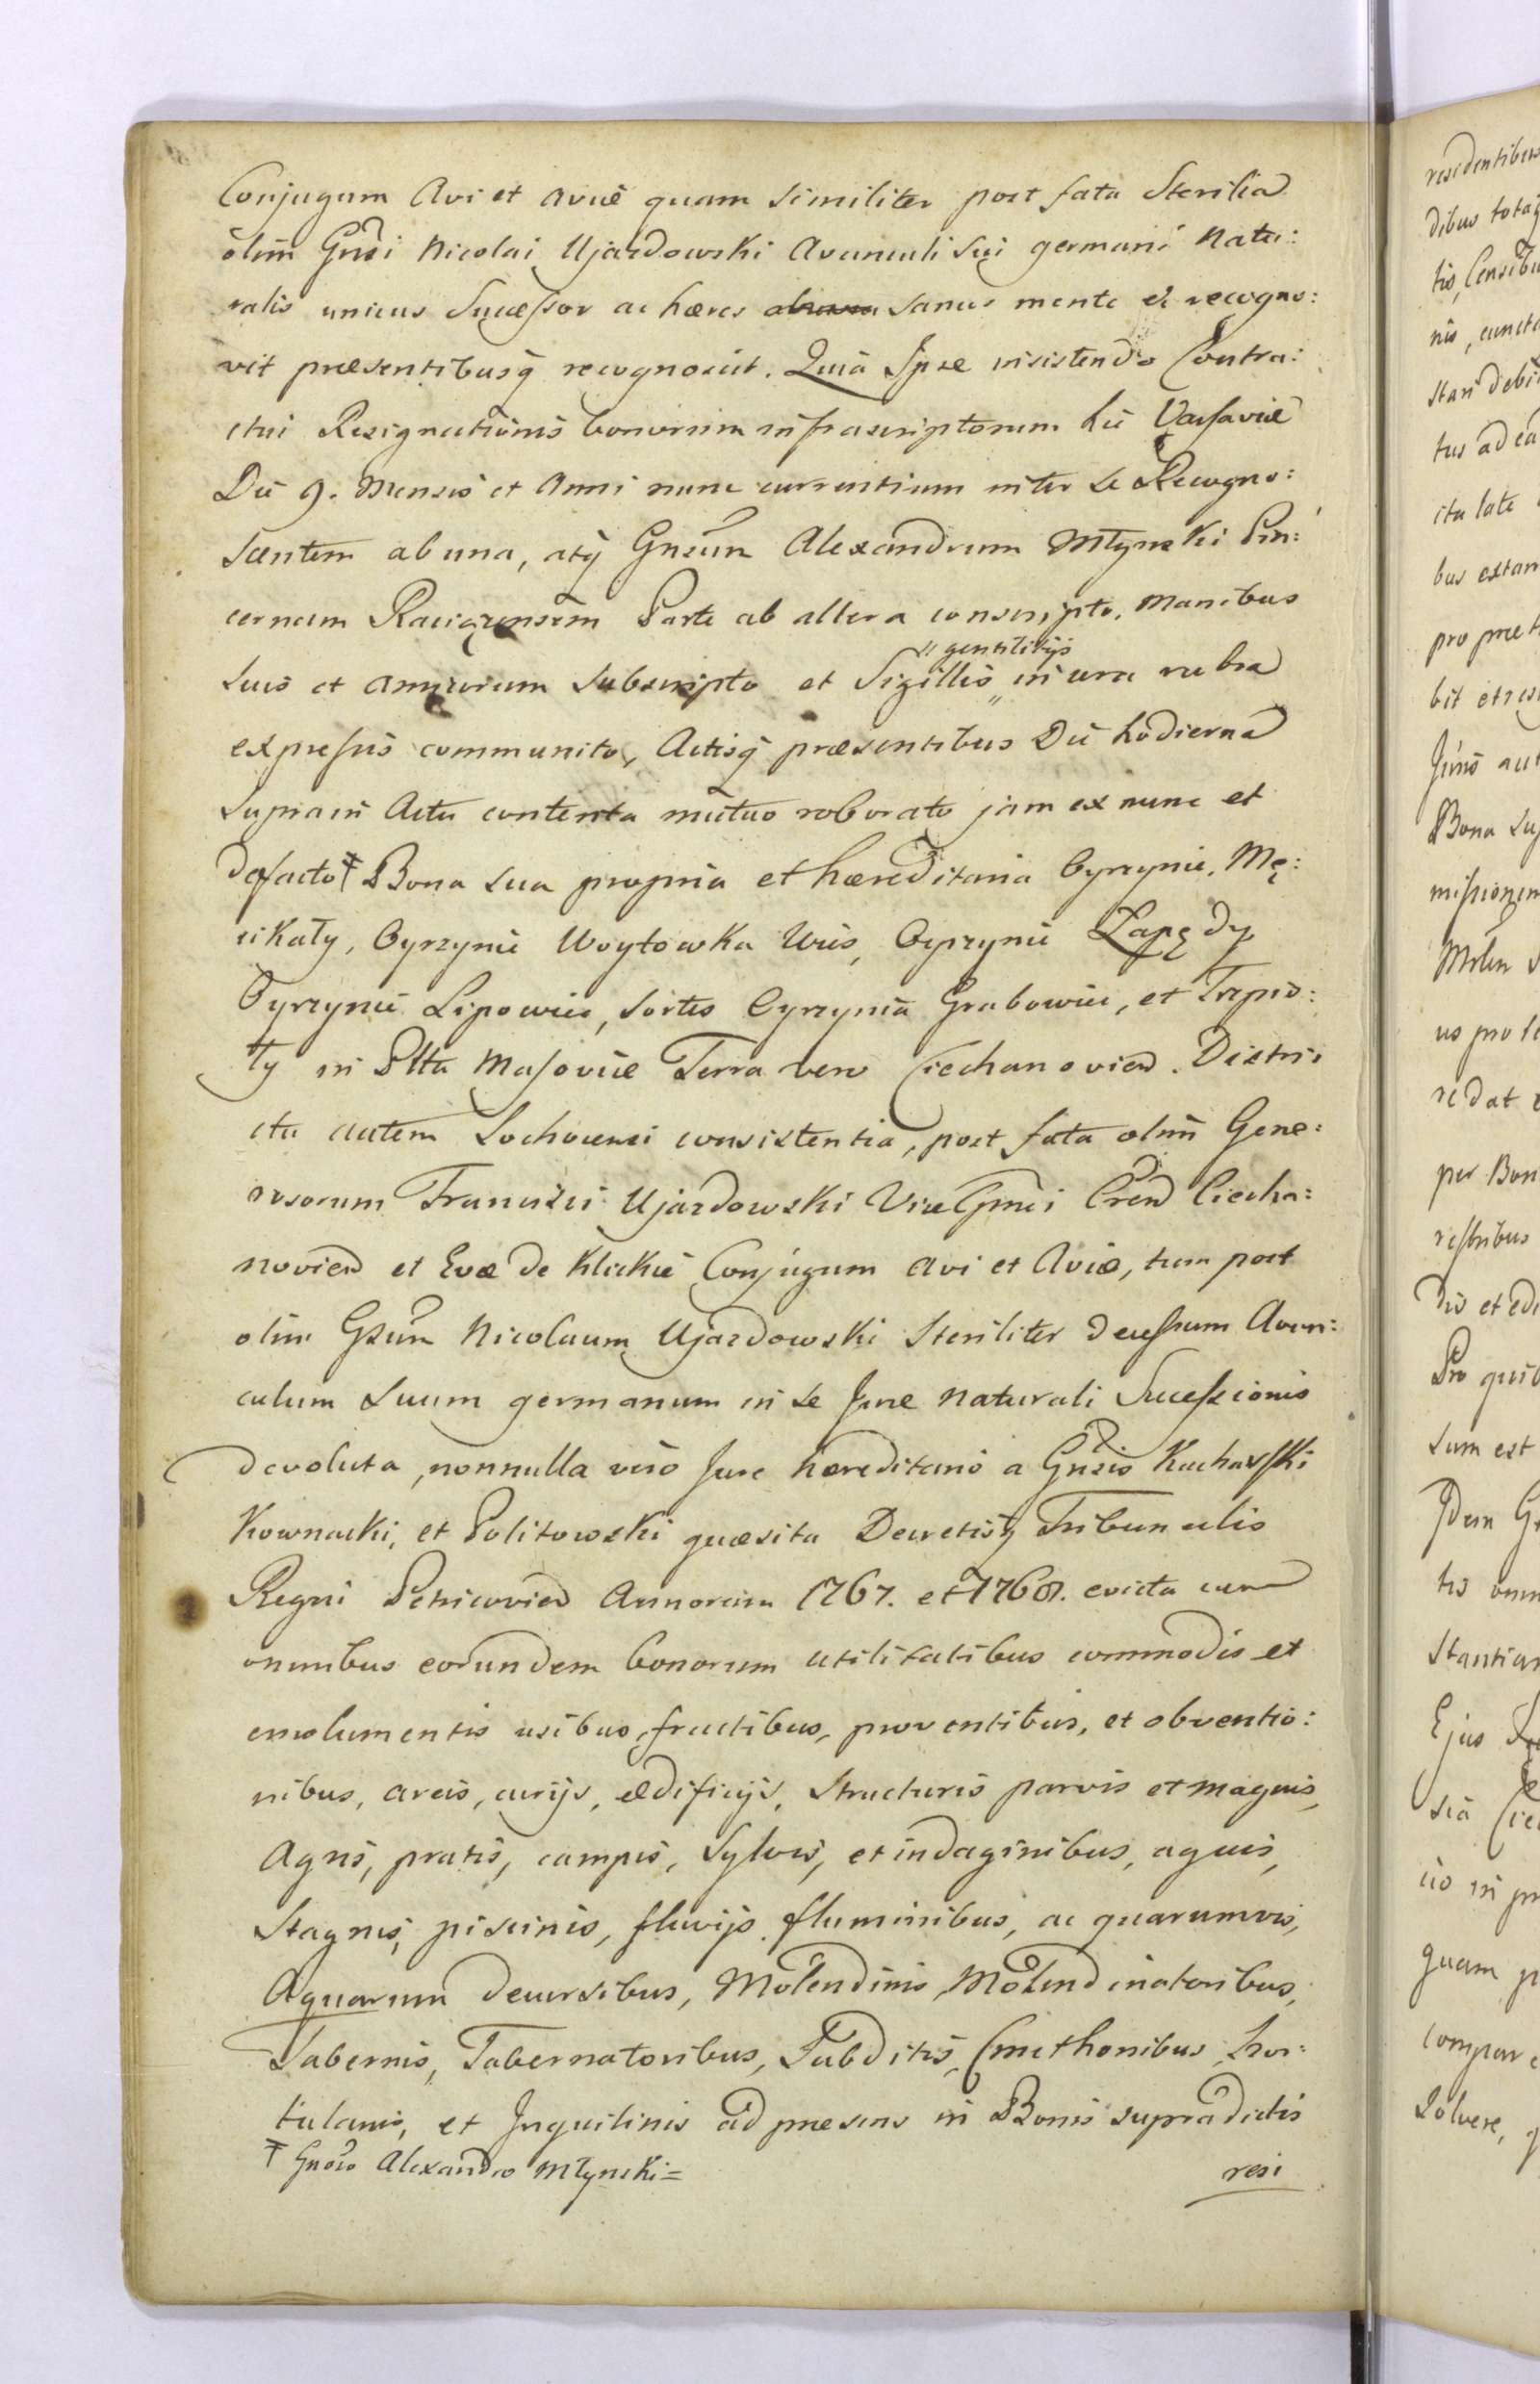 Conjugum Avi et Aviæ quam similiter post fata Sterilia
olim Gnsi Nicolai Ujazdowski Avunculi sui germani Natu:
ralis unicus Sucessor ac hæres sanus mente et recogno:
vit præsentibusq recognoscit. Quia Ipse insistendo Contra:
ctui Resignationis bonorum infrascriptorum hic Varsaviæ
Die 9. Mensis et Anni nunc currentium inter se Recogno:
scentem ab una, atq Gnsum Alexandrum Młynski Pin:
cernam Raciązensem Parte ab altera conscripto, Manibus
suis et amicorum subscripto et Sigillis " in cera rubra
" gentilitijs
expressis communito, Actisq præsentibus Die hodierna
supra in Actu contenta mutuo roborato jam ex nunc et
defacto ⸸ Bona sua propria et hæreditaria Ogrzynie, Mę:
cikały, Ogrzynie Woytowka Wies, Ogrzynie Łapędy
Ogrzynie Lipowiec, Sortes Ogrzynia Grabowiec, et Trzpio:
ły in Pltu Masoviæ Terra vero Ciechanovien. Distri:
ctu autem Sochocensi consistentia, post fata olim Gene:
rosorum Francisci Ujazdowski Vice Cpnei Cren Ciecha:
novien et Evæ de Klickie Conjugum Avi et Aviæ, tum post
olim Gsum Nicolaum Ujazdowski Steriliter decessum Avun:
culum suum germanum in se Jure naturali Sucessionis
devoluta, nonnulla vero Jure hæreditario a Gnsis Kucharski
Kownacki, et Politowski quæsita Decretisq Tribunalis
Regni Petricovien Annorum 1767. et 1768. evicta cum
omnibus eorundem bonorum utilitatibus commodis et
emolumentis usibus, fructibus, proventibus, et obventio:
nibus, areis, curijs, ædificijs, structuris parvis et magnis,
Agris, pratis, campis, Sylvis, et indaginibus, aquis,
Stagnis, piscinis, fluvijs fluminibus, ac quarumvis,
Aquarum decursibus, Molendinis, Molendinatoribus,
Tabernis, Tabernatoribus, Subditis, Cmethonibus, hor:
tulanis, et Inquilinis ad præsens in Bonis supradictis
⸸ Gnoso Alexandro Młynski =
resi
residentibus
dibus totaq
tis, Censibu
nis, cuncta
stari debi
tus ad ea
ita late
bus extan
pro præt
Juris aut
Bona Su
missionem
us pro
redat
per Bon
restibus
Pro quib
sum est
Idem G
Stantiar
Ejus
sia Cie
quam p
compare
Solvere,